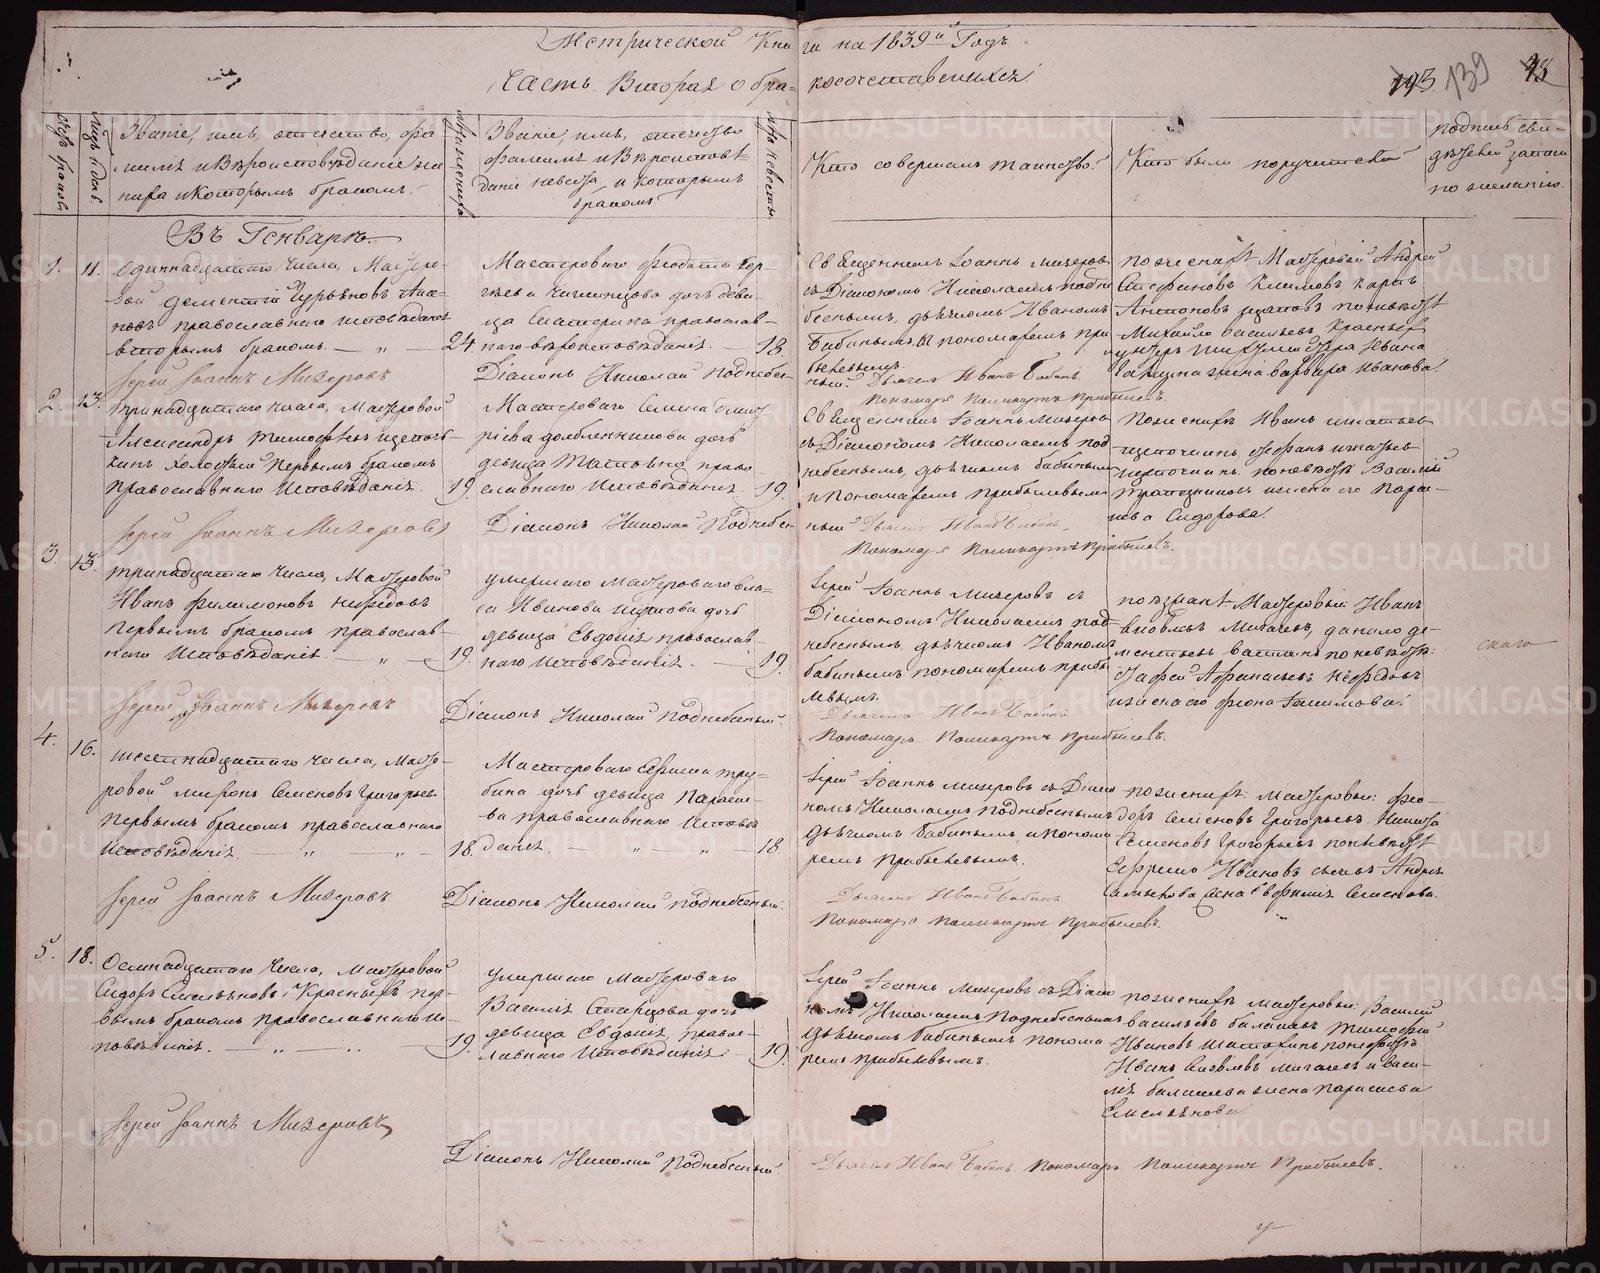 Метрической Книги на 1839й Годъ
Часть Вторая о бракосочетавшихся
193 139
счетъ браковъ
мѣсяцъ и день
Званіе, имя, отечество, фа
милія и Вѣроисповѣданіе же
ниха и которымъ бракомъ.
лѣта жениха
Званіе, имя, отечество
фамилія и Вѣроисповѣ
даніе невѣсты и которымъ
бракомъ
лѣта невѣсты
Кто совершалъ таинство.
Кто были поручители
подпись сви-
дѣтелей записи
по желанію.
Въ Генварѣ.
1. 11. Одиннадцатаго Числа, Мастеро-
вой Дементій Гурьяновъ
новъ православнаго исповѣданія
вторымъ бракомъ. — „ — 24.
Мастероваго Федота Сер-
гѣева дочь деви-
ца Екатерина православ-
наго вѣроисповѣданія. — 18.
Священникъ Іоаннъ Мизеровъ
съ Діакономъ Николаемъ Подне
беснымъ, дьячкомъ Иваномъ
Бабинымъ и пономаремъ При
былевымъ.
по женихѣ Мастеровой Андрей
Стефановъ Климовъ Карпъ
Антоновъ по невѣстѣ
Михайло Васильевъ Красныхъ
Ивана
жена Варвара Иванова.
Іерей Іоаннъ Мизеровъ
Діаконъ Николай Поднебес-
ный. Дьячекъ Иванъ Бабинъ.
Пономарь Поликарпъ Прибылевъ.
2. 13. Тринадцатаго Числа, Мастеровой
Александръ Тимофѣевъ Щепоч-
кинъ холостый первымъ бракомъ
православнаго Исповѣданія. 19.
Мастероваго Семена Дмит
ріева дочь
девица Матрона право-
славнаго Исповѣданія. 19.
Священникъ Іоаннъ Мизеровъ
съ Діакономъ Николаемъ Под
небеснымъ, дьячкомъ Бабинымъ
и Пономаремъ Прибылевымъ
По женихѣ Иванъ Игнатьевъ
Щепочкинъ, Стефанъ Игнатьевъ
Щепочкинъ. по невѣстѣ Василій
Трапезниковъ и жена его Парас-
кева Сидорова.
Іерей Іоаннъ Мизеровъ
Діаконъ Николай Поднебес-
ный Дьячекъ Иванъ Бабинъ.
Пономарь Поликарпъ Прибылевъ.
3. 13. Тринадцатаго Числа, Мастеровой
Иванъ Филимоновъ Нефедовъ
Первымъ бракомъ Православ-
наго Исповѣданія. — „ — 19.
умершаго Мастероваго Вла-
са Иванова дочь
девица Евдокія православ-
наго Исповѣданія. — 19.
Іерей Іоаннъ Мизеровъ съ
Діакономъ Николаемъ Под-
небеснымъ, дьячкомъ Иваномъ
Бабинымъ пономаремъ Прибы
левымъ.
по женихѣ Мастеровый Иванъ
Яковлевъ Мигачевъ, Данило Де-
ментьевъ по невѣстѣ:
Афанасьевъ Нефедовъ
и жена его
Іерей Іоаннъ Мизеровъ
Діаконъ Николай Поднебесный.
Дьячекъ Иванъ Бабинъ
Пономарь Поликарпъ Прибылевъ.
4. 16. Шестнадцатаго Числа, Масте-
ровой Миронъ Семеновъ Григорьевъ
Первымъ бракомъ православнаго
Исповѣданія. — „ — „ — 18.
Мастероваго Ефима Тру-
бина дочь девица Параске-
ва православнаго Исповѣ
данія. — „ — „ — 18.
Іерей Іоаннъ Мизеровъ съ Діако
номъ Николаемъ Поднебеснымъ
дьячкомъ Бабинымъ и понома
ремъ Прибылевымъ.
по женихѣ: Мастеровые: Фео-
доръ Семеновъ Григорьевъ. Никита
Семеновъ Григорьевъ по невѣстѣ
Ефремъ Ивановъ Андрея
Семенова.
Іерей Іоаннъ Мизеровъ
Діаконъ Николай Поднебесный.
Дьячекъ Иванъ Бабинъ
Пономарь Поликарпъ Прибылевъ.
5. 18. Осмнадцатаго Числа, Мастеровой
Сидоръ Емельяновъ Красныхъ пер-
вымъ бракомъ православнаго Ис-
повѣданія. — „ — „ — 19.
умершаго Мастероваго
Василія Старцова дочь
девица Евдокія право-
славнаго Исповѣданія — 19.
Іерей Іоаннъ Мизеровъ съ Діако
номъ Николаемъ Поднебеснымъ
дьячкомъ Бабинымъ понома
ремъ Прибылевымъ.
по женихѣ Мастеровые: Василій
Васильевъ Балашевъ Тимофей
Ивановъ по невѣстѣ
Иванъ Яковлевъ Мигачевъ и Васи-
лія Балашева жена Параскева
Емельянова.
Іерей Іоаннъ Мизеровъ
Діаконъ Николай Поднебесный
Дьячекъ Иванъ Бабинъ. Пономарь Поликарпъ Прибылевъ.
METRIKI.GASO-URAL.RU